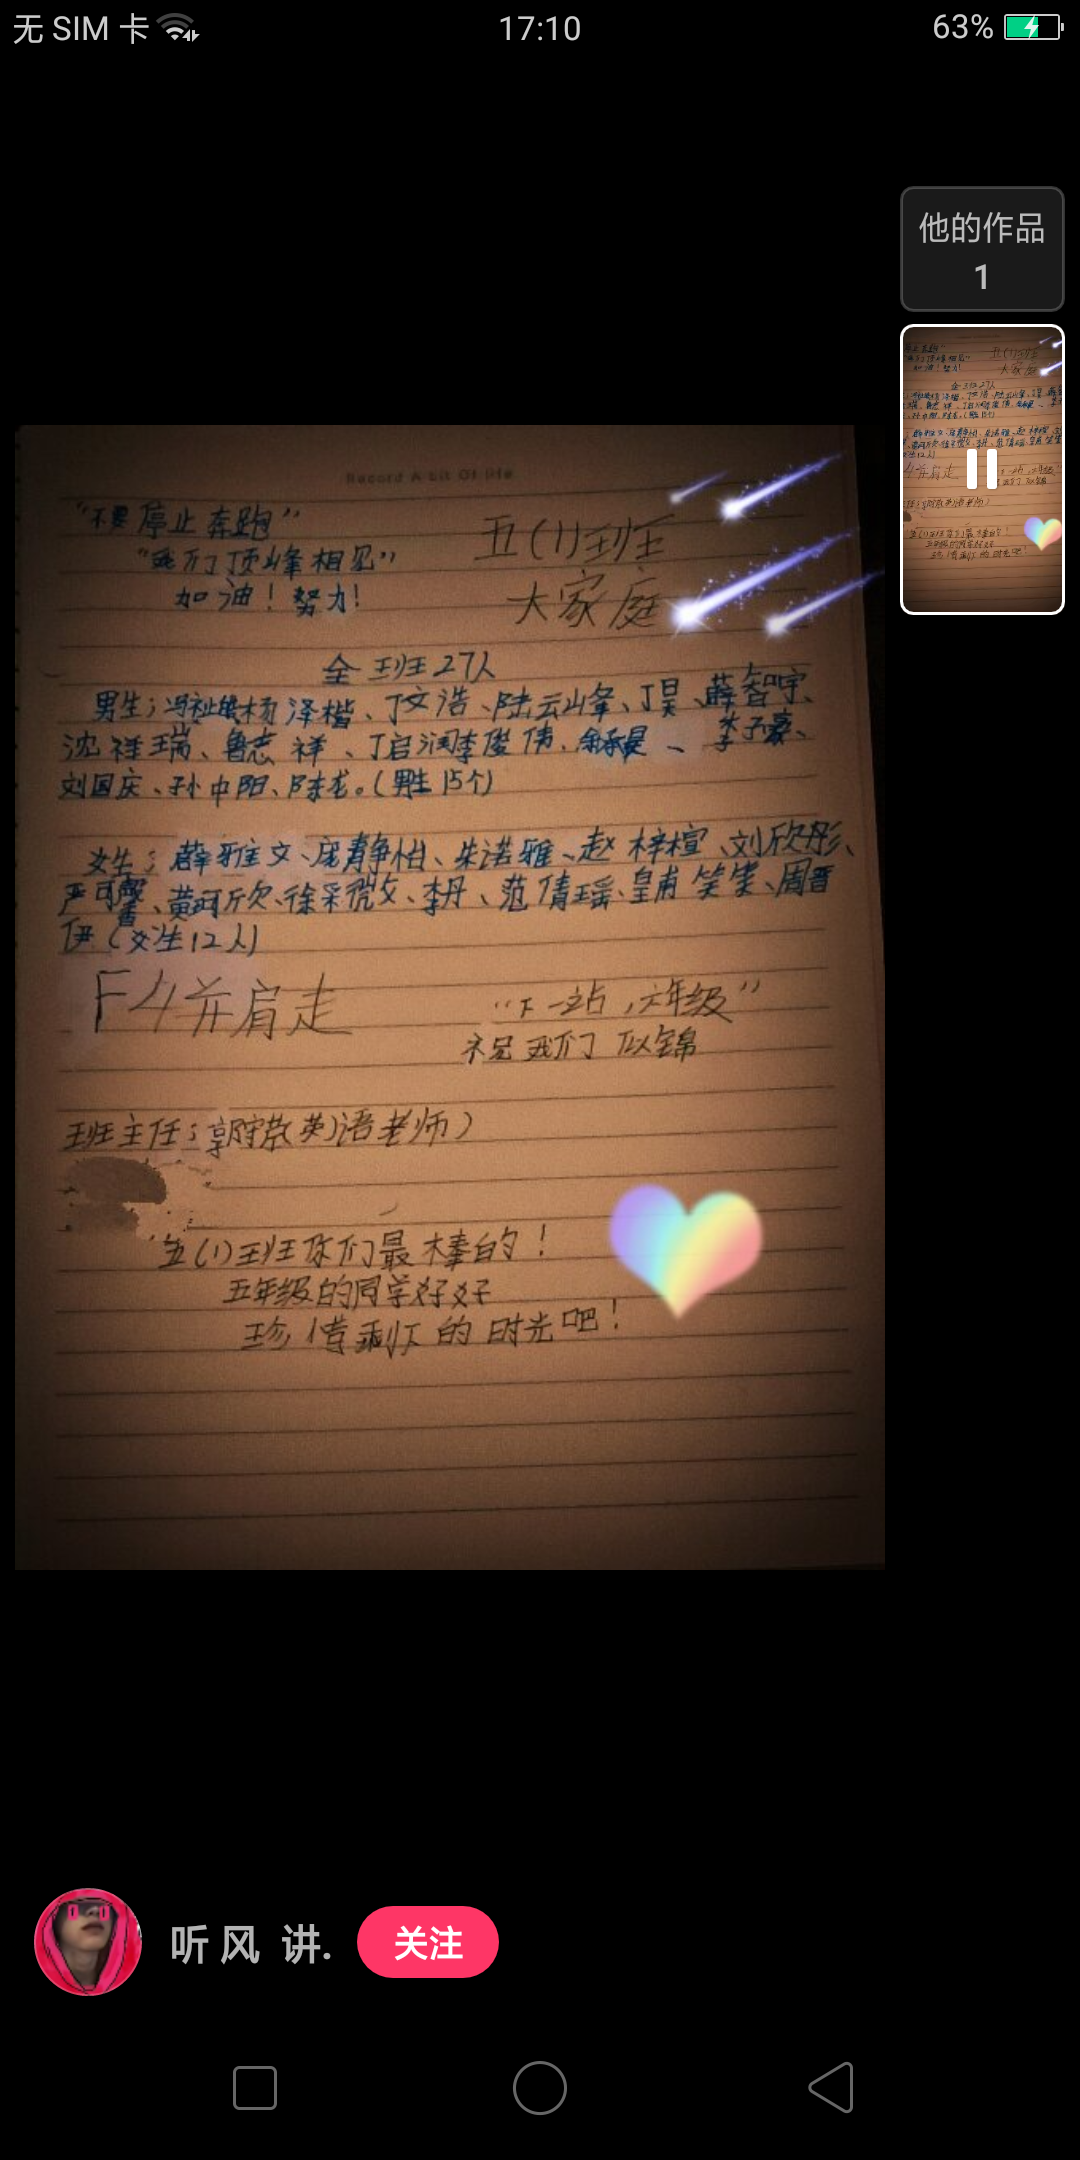 无 SIM 卡
17:10
63%
他的作品
1
Record A bit Of life
"不要停止奔跑"
"我们顶峰相见"
加油！努力！
五(1)班
大家庭
全班27人
男生；冯祉 杨泽楷、丁文浩、陆云峰、丁昊、薛智宇、
沈祥瑞、鲁志祥、丁启润李俊倩、 、李子豪、
刘国庆、孙中阳、陈龙。(男生15个)
女生；薛雅文、庞静怡、朱诺雅、赵梓楦、刘欣彤、
严可馨、黄可欣、徐采微、李丹、范倩瑶、皇甫笑笑、周晋
伊(女生12人)
F4并肩走
"下一站，六年级"
祝我们 似锦
班主任；郭 英语老师)
五(1)班你们最棒的！
五年级的同学好好
珍惜剩下的时光吧！
听 风 讲.
关注